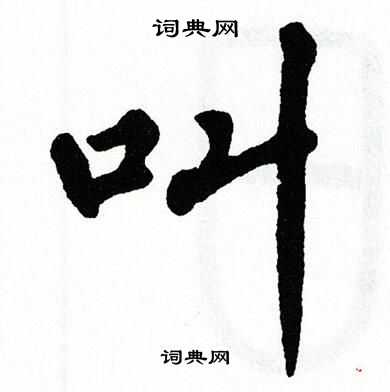 词典网
叫
词典网